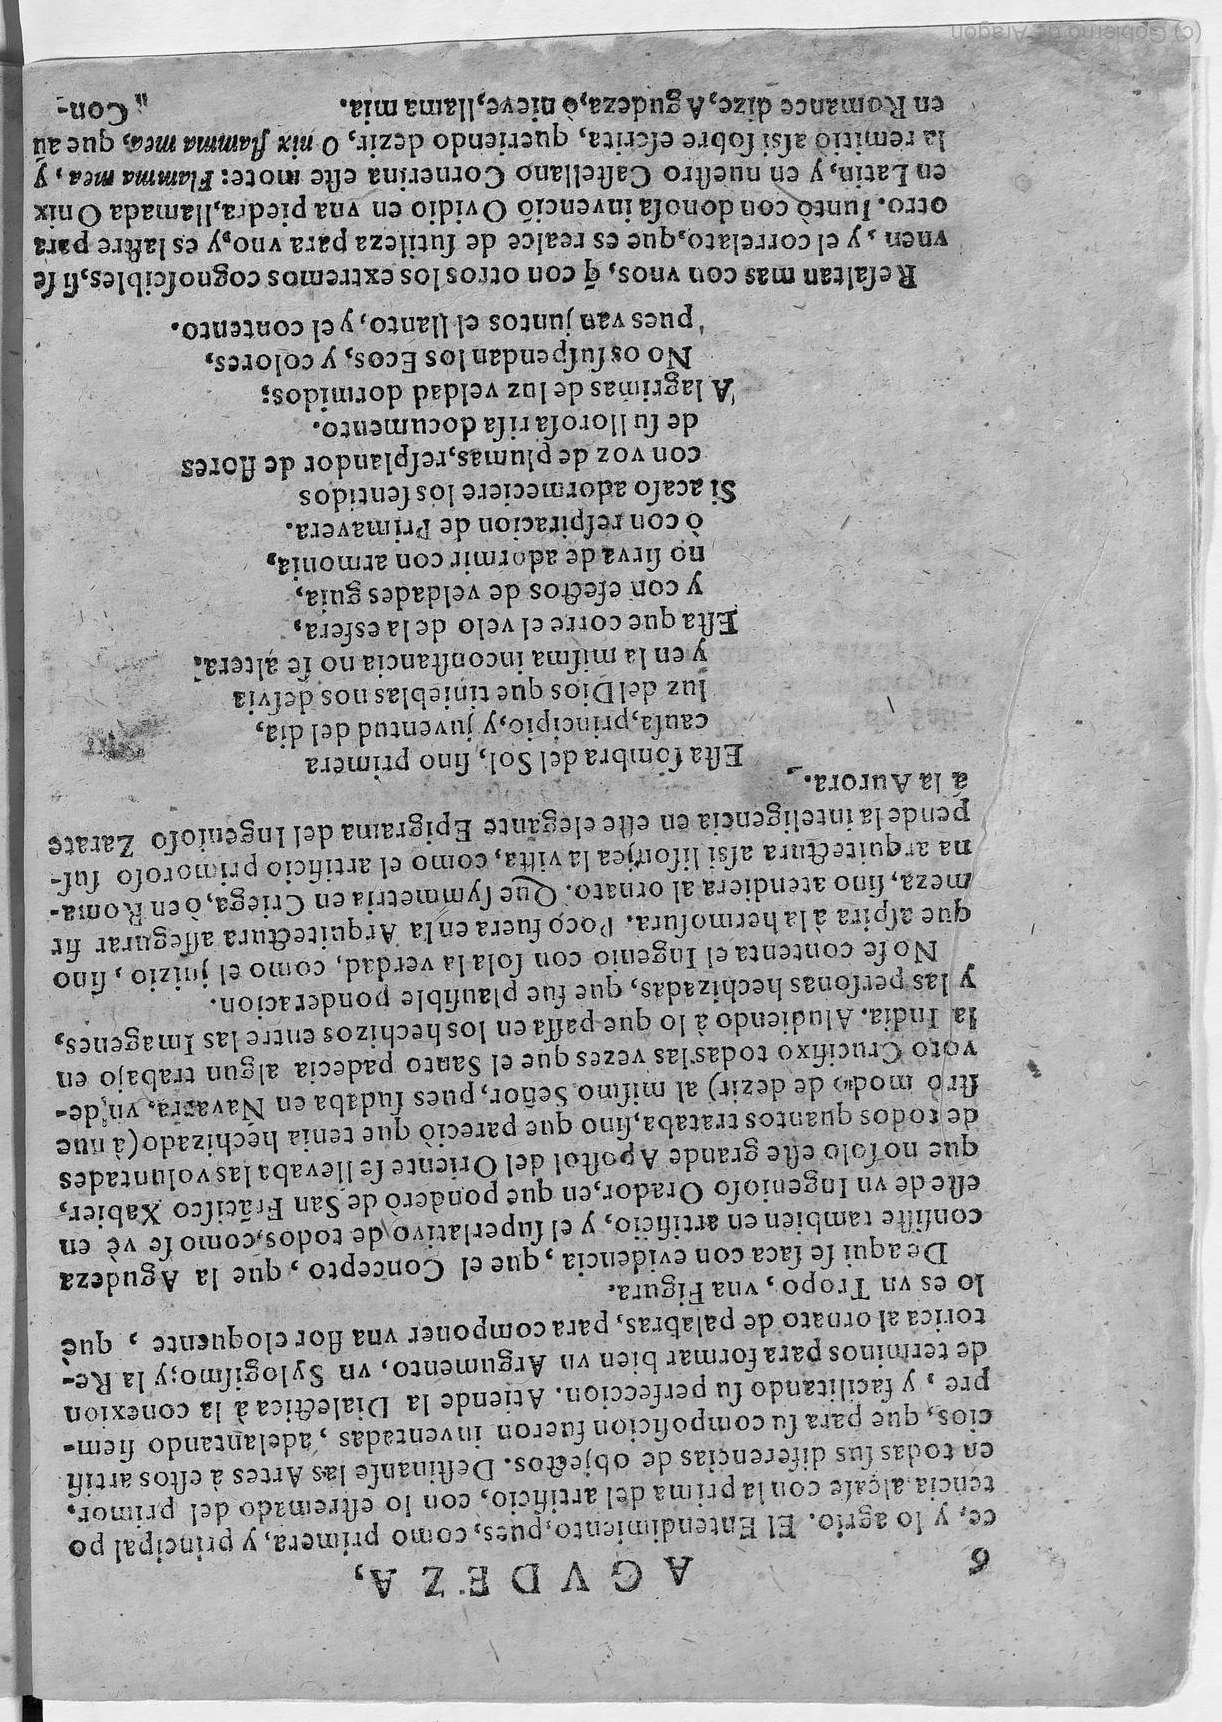 6 AGVDEZA,
ce, y lo agrio. El Entendimiento, pues, como primera, y principal po
tencia alçase con la prima del artificio, con lo estremado del primor,
en todas sus diferencias de objectos. Destinanse las Artes à estos artifi
cios, que para su composicion fueron inventadas, adelantando siem-
pre, y facilitando su perfeccion. Atiende la Dialectica à la conexion
de terminos para formar bien vn Argumento, vn Sylogismo; y la Re-
torica al ornato de palabras, para componer vna flor eloquente, que
lo es vn Tropo, vna Figura.
De aqui se saca con evidencia, que el Concepto, que la Agudeza
consiste tambien en artificio, y el superlativo de todos, como se vè en
este de vn Ingenioso Orador, en que ponderò de San Frācisco Xabier,
que no solo este grande Apostol del Oriente se llevaba las voluntades
de todos quantos trataba, sino que pareciò que tenia hechizado (à nue
stro modo de dezir) al mismo Señor, pues sudaba en Navarra, vn de-
voto Crucifixo todas las vezes que el Santo padecia algun trabajo en
la India. Aludiendo à lo que passa en los hechizos entre las Imagenes,
y las personas hechizadas, que fue plausible ponderacion.
No se contenta el Ingenio con sola la verdad, como el juizio, sino
que aspira à la hermosura. Poco fuera en la Arquitectura assegurar fir
meza, sino atendiera al ornato. Que symmetria en Griega, ò en Roma-
na arquitectura assi lisonjea la vista, como el artificio primoroso sus-
pende la inteligencia en este elegante Epigrama del Ingenioso Zarate
à la Aurora.
Esta sombra del Sol, sino primera
causa, principio, y juventud del dia,
luz del Dios que tinieblas nos desvia
y en la misma inconstancia no se altera.
Esta que corre el velo de la esfera,
y con efectos de veldades guia,
no sirva de adormir con armonia,
ò con respiracion de Primavera.
Si acaso adormeciere los sentidos
con voz de plumas, resplandor de flores
de su llorosa risa documento.
A lagrimas de luz veldad dormidos;
No os suspendan los Ecos, y colores,
pues van juntos el llanto, y el contento.
Resaltan mas con vnos, q̃ con otros los extremos cognoscibles, si se
vnen, y el correlato, que es realce de sutileza para vno, y es lastre para
otro. Juntò con donosa invenciō Ovidio en vna piedra, llamada Onix
en Latin, y en nuestro Castellano Cornerina este mote: Flamma mea, y
la remitiò assi sobre escrita, queriendo dezir, O nix flamma mea, que aū
en Romance dize, Agudeza, ò nieve, llama mia.
Con-
(c) Gobierno de Aragón